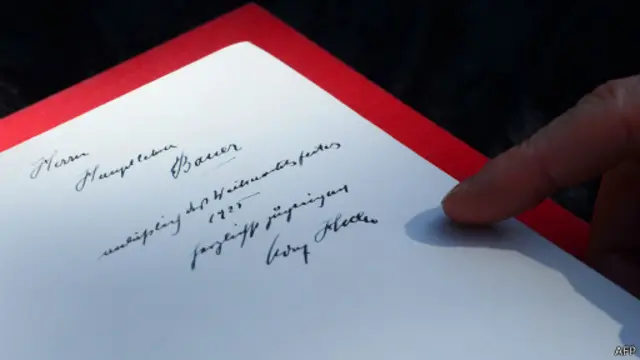 Herrn
Hauptlehrer Bauer
anläßlich des Weihnachtsfestes
1925
herzlichst zugeeignet
Adolf Hitler
AFP